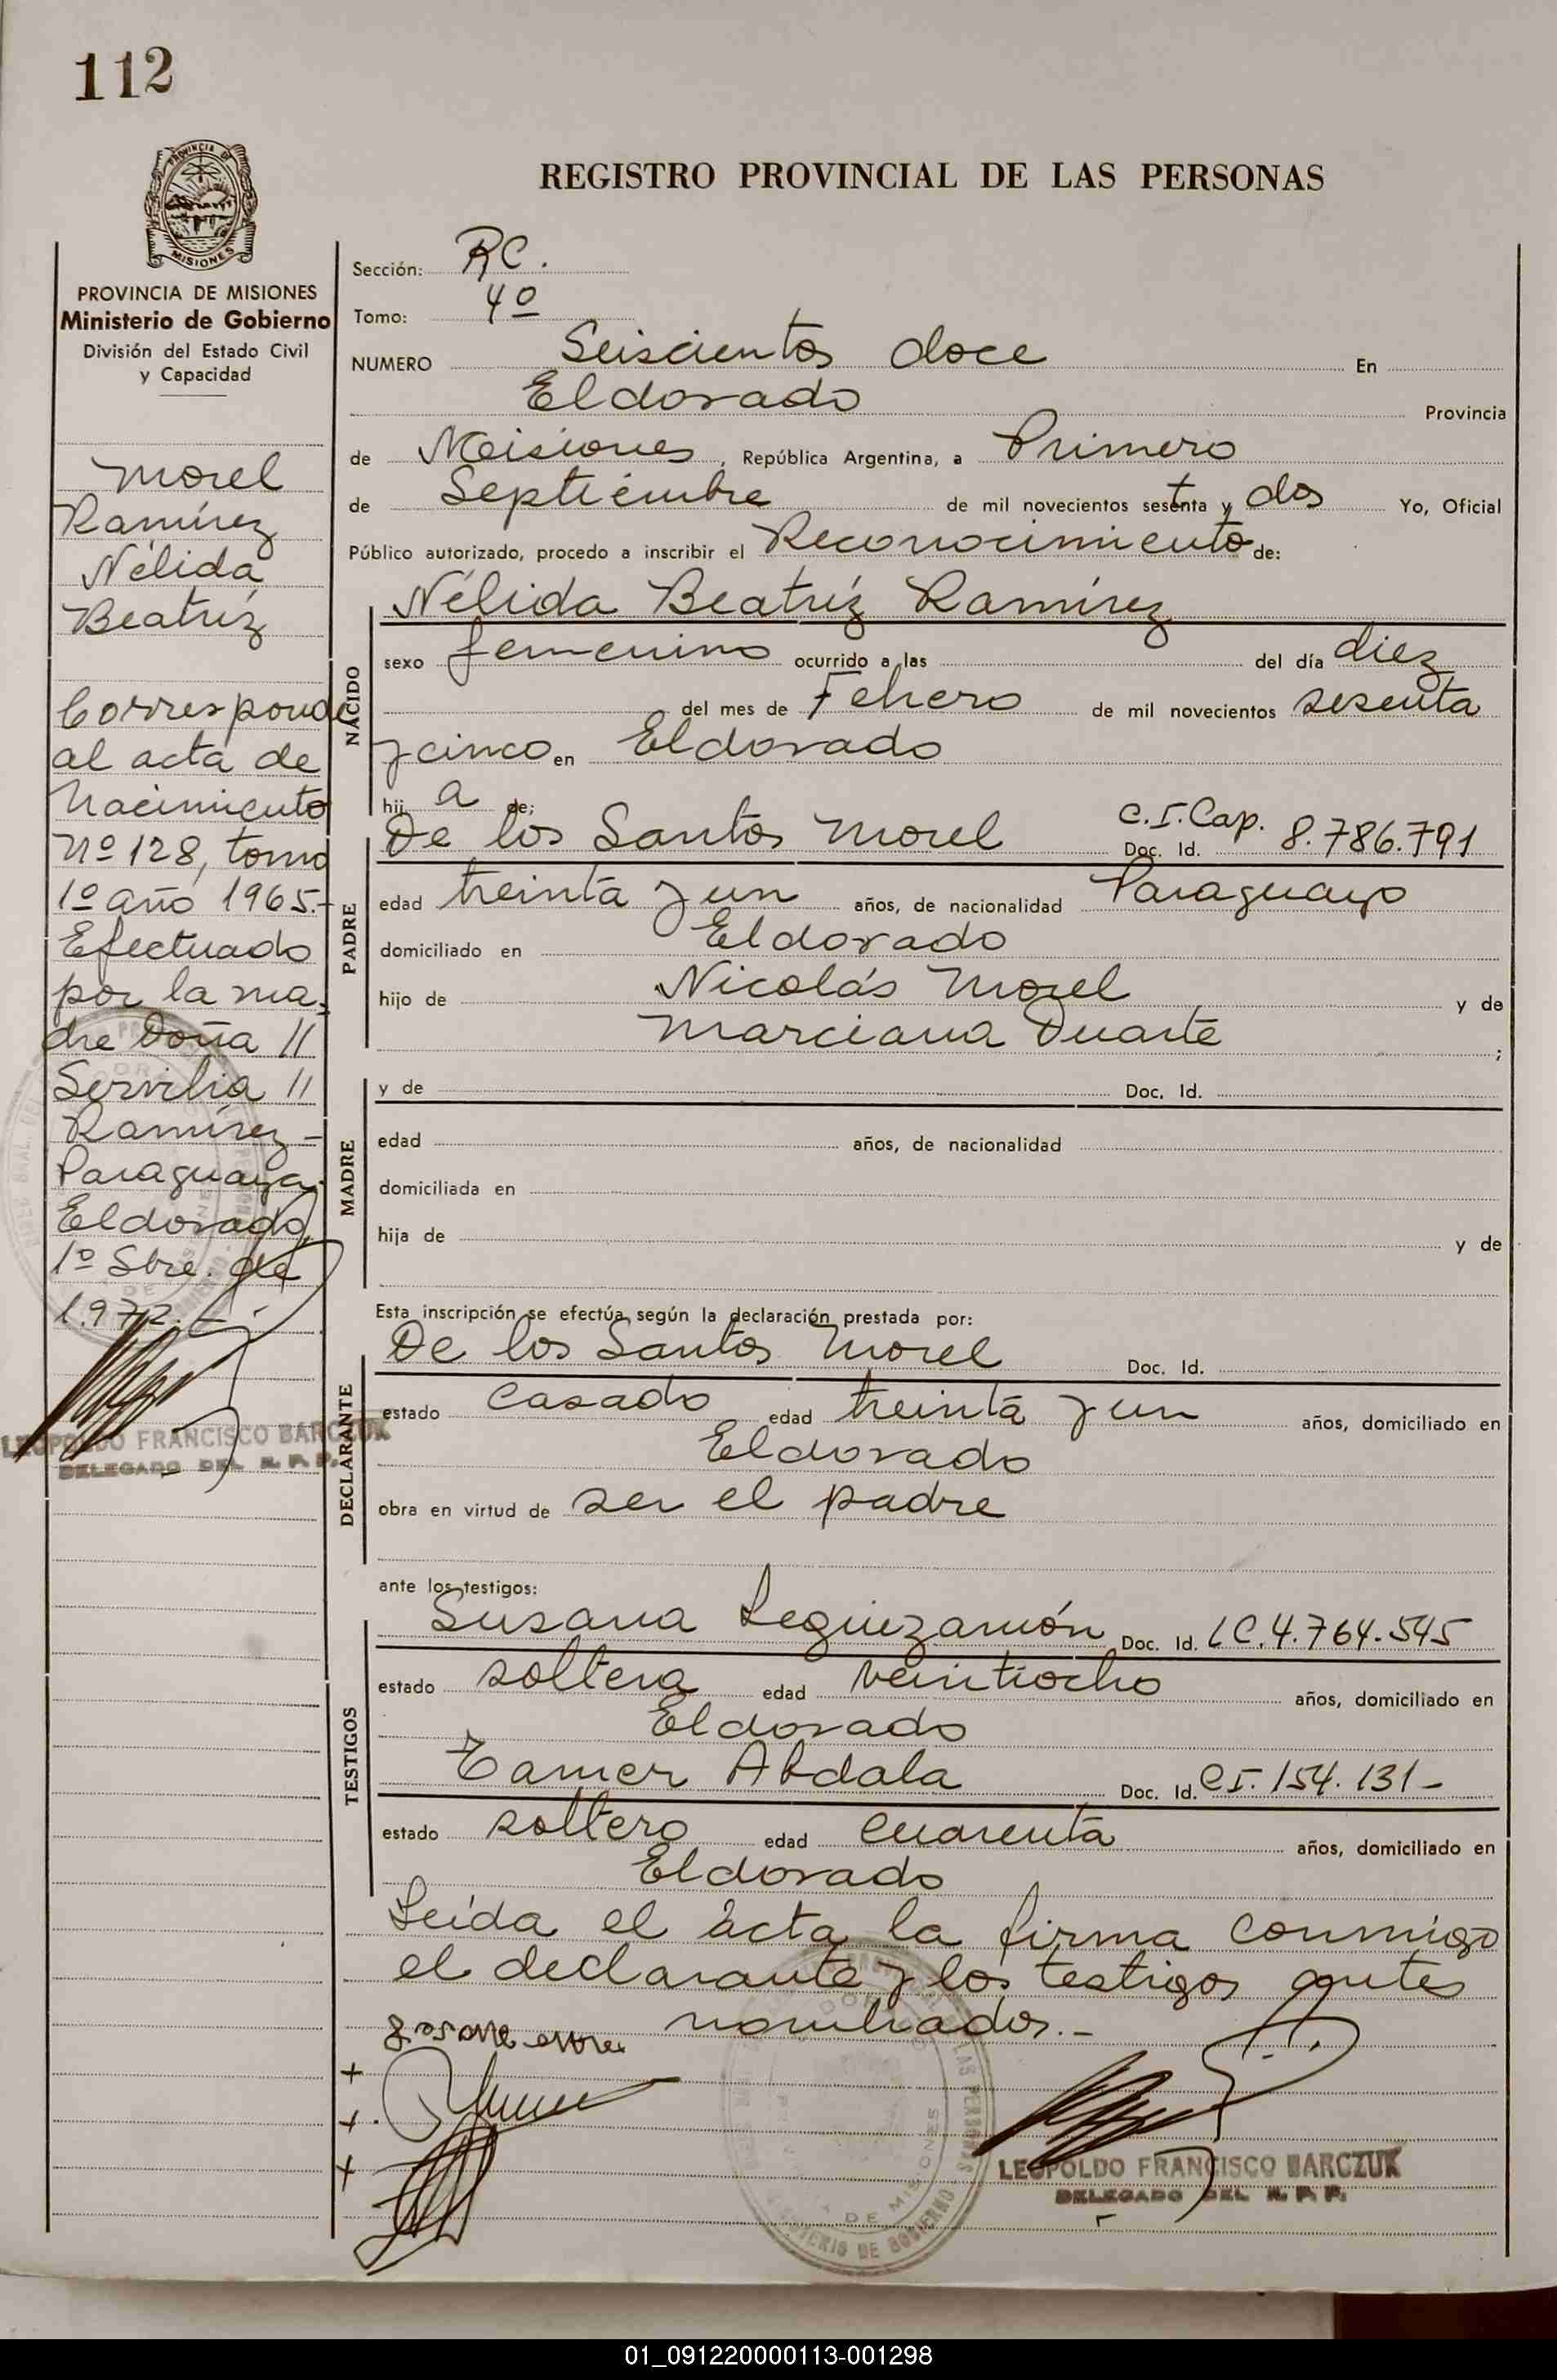 112
REGISTRO PROVINCIAL DE LAS PERSONAS
PROVINCIA DE
MISIONES
PROVINCIA DE MISIONES
Ministerio de Gobierno
División del Estado Civil
y Capacidad
Morel
Ramírez
Nélida
Beatríz
Corresponde
al acta de
Nacimiento
Nº 128, tomo
1º año 1965.-
Efectuado
por la ma-
dre Doña //
Servilia //
Ramírez -
Paraguaya.
Eldorado,
1º Sbre. de
1.972.
LEOPOLDO FRANCISCO BARCZUK
DELEGADO DEL R. P. P.
Sección: RC.
Tomo: 4º
NUMERO Seiscientos doce En
Eldorado Provincia
de Misiones, República Argentina, a Primero
de Septiembre de mil novecientos setenta y dos Yo, Oficial
Público autorizado, procedo a inscribir el Reconocimiento de:
NACIDO
Nélida Beatríz Ramírez
sexo femenino ocurrido a las del día diez
del mes de Febrero de mil novecientos sesenta
y cinco en Eldorado
hij a de:
PADRE
De los Santos Morel C.I.Cap. Doc. Id. 8.786.791
edad treinta y un años, de nacionalidad Paraguayo
domiciliado en Eldorado
hijo de Nicolás Morel y de
Marciana Duarte ;
MADRE
y de Doc. Id.
edad años, de nacionalidad
domiciliada en
hija de y de
Esta inscripción se efectúa según la declaración prestada por:
DECLARANTE
De los Santos Morel Doc. Id.
estado casado edad treinta y un años, domiciliado en
Eldorado
obra en virtud de ser el padre
ante los testigos:
TESTIGOS
Susana Legüizamón Doc. Id. LC.4.764.545
estado soltera edad veintiocho años, domiciliado en
Eldorado
Tamer Abdala Doc. Id. CI.154.131-
estado soltero edad cuarenta años, domiciliado en
Eldorado
Leída el acta la firma conmigo
el declarante y los testigos antes
nombrados.-
LEOPOLDO FRANCISCO BARCZUK
DELEGADO DEL R. P. P.
01_091220000113-001298